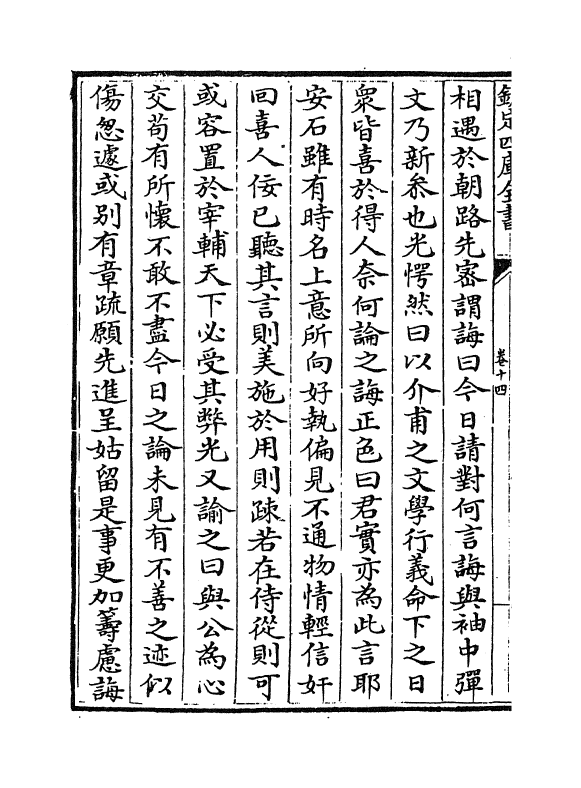 欽定四庫全書
卷十四
相遇於朝路先密謂誨曰今日請對何言誨與袖中彈
文乃新叅也光愕然曰以介甫之文學行義命下之日
衆皆喜於得人奈何論之誨正色曰君實亦為此言耶
安石雖有時名上意所向好執偏見不通物情輕信奸
回喜人佞已聽其言則美施於用則疎若在侍從則可
或容置於宰輔天下必受其弊光又諭之曰與公為心
交苟有所懷不敢不盡今日之論未見有不善之迹似
傷怱遽或别有章疏願先進呈姑留是事更加籌慮誨